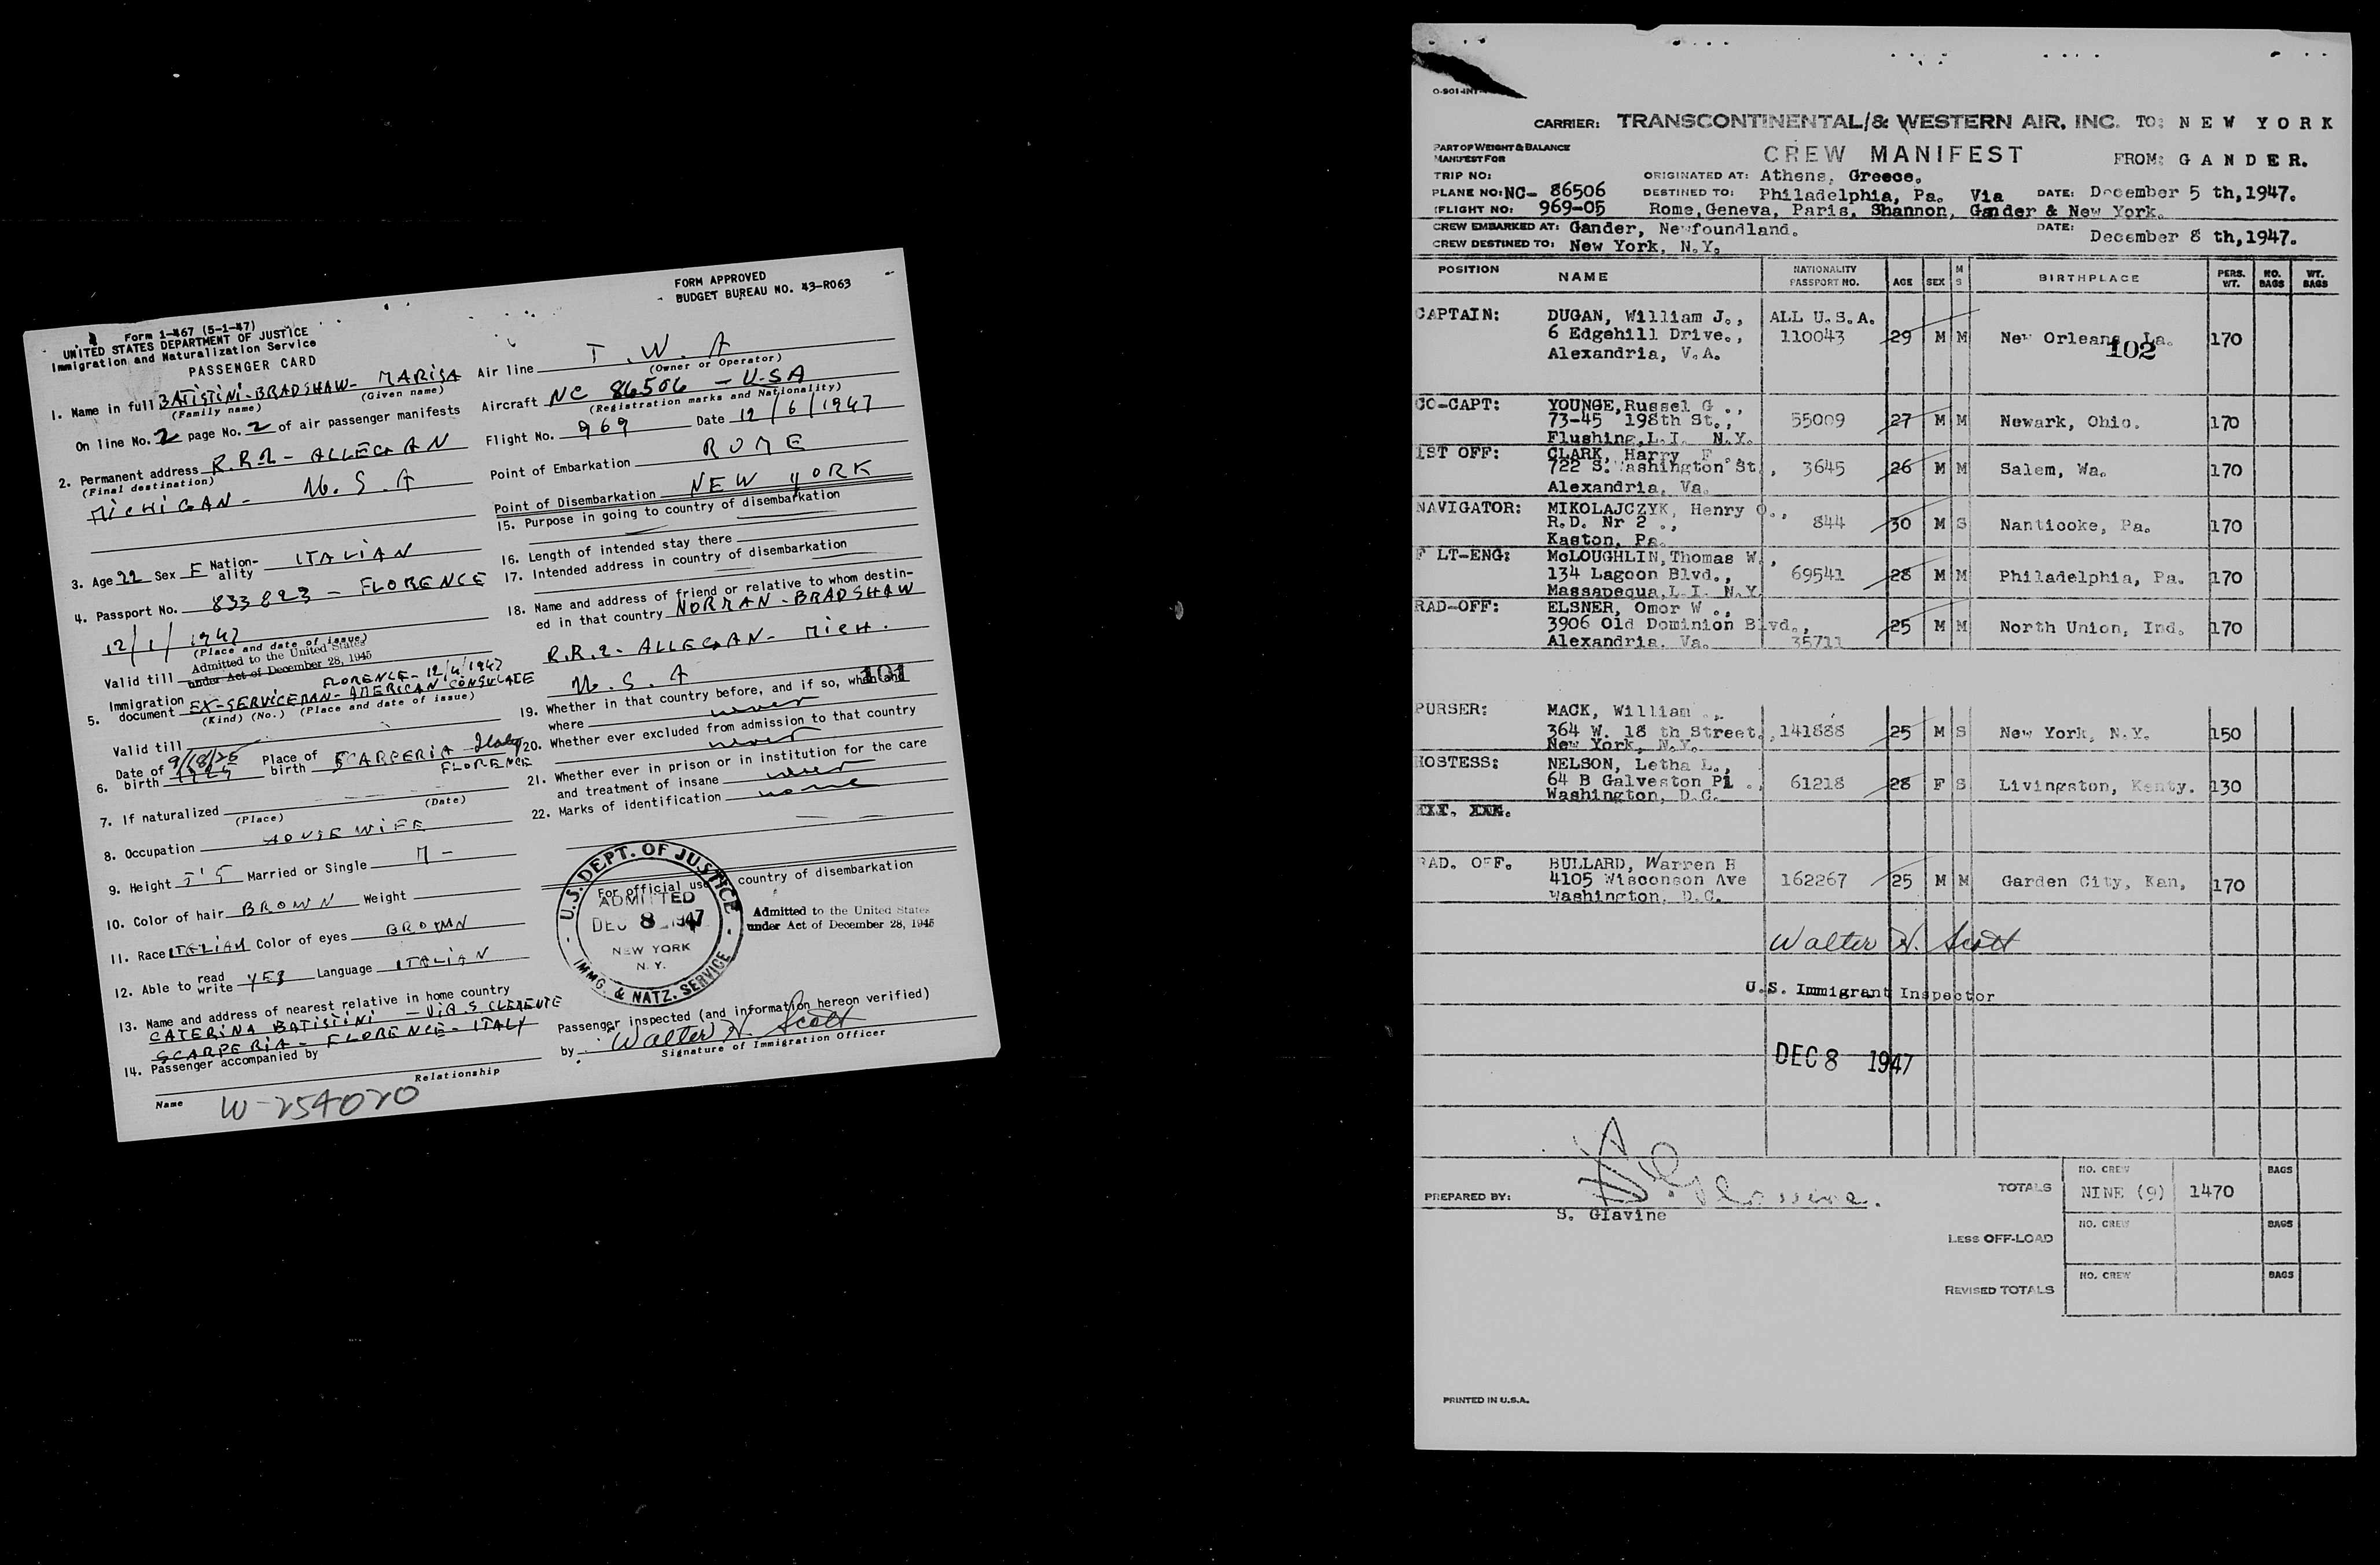 FORM APPROVED
BUDGET BUREAU NO. 43-R063
Form 1-467 (5-1-47)
UNITED STATES DEPARTMENT OF JUSTICE
Immigration and Naturalization Service
PASSENGER CARD
1. Name in full BATISTINI-BRADSHAW- MARISA
(Family name) (Given name)
On line No. 2 page No. 2 of air passenger manifests
2. Permanent address R.R.2- ALLEGAN
(Final destination)
MICHIGAN- U.S.A
3. Age 22 Sex F Nation-ality ITALIAN
4. Passport No. 833823 - FLORENCE
12/1/1947
(Place and date of issue)
Admitted to the United States
Valid till under Act of December 28, 1945
FLORENCE- 12/4/1947
5. Immigration document EX-SERVICEMAN- AMERICAN CONSULATE
(Kind) (No.) (Place and date of issue)
Valid till
6. Date of birth 9/18/25 1925 Place of birth SCARPERIA Italy
FLORENCE
7. If naturalized
(Place) (Date)
8. Occupation HOUSEWIFE
9. Height 5'5 Married or Single M-
10. Color of hair BROWN Weight
11. Race ITALIAN Color of eyes BROWN
12. Able to read write YES Language ITALIAN
13. Name and address of nearest relative in home country
CATERINA BATISTINI - VIA S CLEMENTE
SCARPERIA- FLORENCE- ITALY
14. Passenger accompanied by
Name Relationship
W-254020
Air line T.W.A
(Owner or Operator)
Aircraft NC 86506 - U.S.A
(Registration marks and Nationality)
Flight No. 969 Date 12/6/1947
Point of Embarkation ROME
Point of Disembarkation NEW YORK
15. Purpose in going to country of disembarkation
16. Length of intended stay there
17. Intended address in country of disembarkation
18. Name and address of friend or relative to whom destin-
ed in that country NORMAN-BRADSHAW
R.R.2- ALLEGAN- MICH.
U.S.A
101
19. Whether in that country before, and if so, when and
where never
20. Whether ever excluded from admission to that country
never
21. Whether ever in prison or in institution for the care
and treatment of insane never
22. Marks of identification none
For official use country of disembarkation
U.S. DEPT. OF JUSTICE
ADMITTED
DEC 8 1947
NEW YORK
N.Y.
IMMG. & NATZ. SERVICE
Admitted to the United States
under Act of December 28, 1945
Passenger inspected (and information hereon verified)
by Walter H. Scott
Signature of Immigration Officer
O-901-INT
CARRIER: TRANSCONTINENTAL/& WESTERN AIR, INC. TO: NEW YORK
PART OF WEIGHT & BALANCE
MANIFEST FOR
CREW MANIFEST FROM: GANDER.
TRIP NO: ORIGINATED AT: Athens, Greece.
PLANE NO: NC- 86506 DESTINED TO: Philadelphia, Pa. Via DATE: December 5 th,1947.
FLIGHT NO: 969-05 Rome, Geneva, Paris, Shannon, Gander & New York.
CREW EMBARKED AT: Gander, Newfoundland. DATE:
CREW DESTINED TO: New York, N.Y. December 8 th,1947.
POSITION NAME NATIONALITY PASSPORT NO. AGE SEX M S BIRTHPLACE PERS. WT. NO. BAGS WT. BAGS
CAPTAIN: DUGAN, William J., ALL U.S.A.
6 Edgehill Drive., 110043 29 M M New Orleans, La. 170
102
Alexandria, V.A.
CO-CAPT: YOUNGE, Russel G.,
73-45 198th St., 55009 27 M M Newark, Ohio. 170
Flushing, L.I. N.Y.
1ST OFF: CLARK, Harry F.,
722 S. Washington St., 3645 26 M M Salem, Wa. 170
Alexandria, Va.
NAVIGATOR: MIKOLAJCZYK, Henry O.,
R.D. Nr 2 ., 844 30 M S Nanticoke, Pa. 170
Easton, Pa.
F LT-ENG: McLOUGHLIN, Thomas W.,
134 Lagoon Blvd., 69541 28 M M Philadelphia, Pa. 170
Massapequa, L.I. N.Y.
RAD-OFF: ELSNER, Omor W .,
3906 Old Dominion Blvd., 25 M M North Union, Ind. 170
Alexandria. Va. 35711
PURSER: MACK, William .,
364 W. 18 th Street., 141888 25 M S New York, N.Y. 150
New York, N.Y.
HOSTESS: NELSON, Letha L.,
64 B Galveston Pl ., 61218 28 F S Livingston, Kenty. 130
Washington, D.C.
RAD. OFF. BULLARD, Warren B
4105 Wisconson Ave 162267 25 M M Garden City, Kan, 170
Washington, D.C.
Walter H. Scott
U.S. Immigrant Inspector
DEC 8 1947
PREPARED BY: S. Glavine.
S. Glavine
TOTALS NO. CREW NINE (9) 1470 BAGS
LESS OFF-LOAD NO. CREW BAGS
REVISED TOTALS NO. CREW BAGS
PRINTED IN U.S.A.